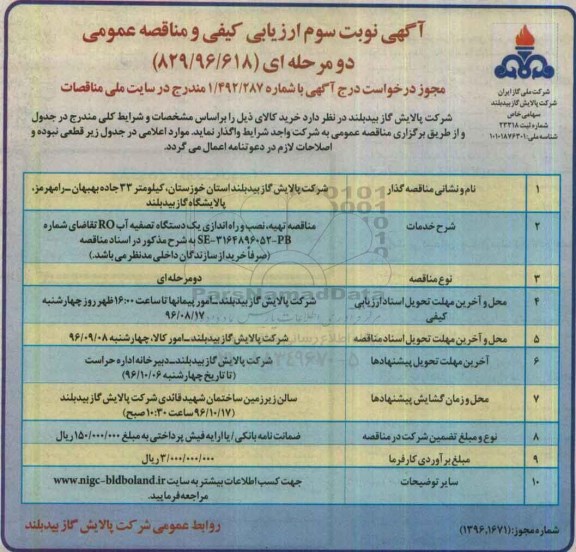 آگهی نوبت سوم ارزیابی کیفی و مناقصه عمومی
دو مرحله ای (۸۲۹/۹۶/۶۱۸)
مجوز درخواست درج آگهی با شماره ۱/۴۹۲/۲۸۷ مندرج در سایت ملی مناقصات
شرکت ملی گاز ایران
شرکت پالایش گاز بیدبلند
سهامی خاص
شماره ثبت ۲۳۳۱۸
شناسه ملی: ۱۰۱۰۱۸۷۶۳۰۱
شرکت پالایش گاز بیدبلند در نظر دارد خرید کالای ذیل را بر اساس مشخصات و شرایط کلی مندرج در جدول
و از طریق برگزاری مناقصه عمومی به شرکت واجد شرایط واگذار نماید. موارد اعلامی در جدول زیر قطعی نبوده و
اصلاحات لازم در دعوتنامه اعمال می گردد.
۱ نام و نشانی مناقصه گذار شرکت پالایش گاز بیدبلند استان خوزستان، کیلومتر ۳۳ جاده بهبهان – رامهرمز،
پالایشگاه گاز بیدبلند
۲ شرح خدمات مناقصه تهیه، نصب و راه اندازی یک دستگاه تصفیه آب RO تقاضای شماره
SE-۳۱۶۴۸۹۶۰۵۲-PB به شرح مذکور در اسناد مناقصه
(صرفاً خرید از سازندگان داخلی مدنظر می باشد.)
۳ نوع مناقصه دو مرحله ای
۴ محل و آخرین مهلت تحویل اسناد ارزیابی کیفی شرکت پالایش گاز بیدبلند – امور پیمانها تا ساعت ۱۶:۰۰ ظهر روز چهارشنبه
۹۶/۰۸/۱۷
۵ محل و آخرین مهلت تحویل اسناد مناقصه شرکت پالایش گاز بیدبلند – امور کالا، چهارشنبه ۹۶/۰۹/۰۸
۶ آخرین مهلت تحویل پیشنهادها شرکت پالایش گاز بیدبلند – دبیرخانه اداره حراست
(تا تاریخ چهارشنبه ۹۶/۱۰/۰۶)
۷ محل و زمان گشایش پیشنهادها سالن زیرزمین ساختمان شهید قائدی شرکت پالایش گاز بیدبلند
(۹۶/۱۰/۱۷ ساعت ۱۰:۳۰ صبح)
۸ نوع و مبلغ تضمین شرکت در مناقصه ضمانت نامه بانکی / یا ارایه فیش پرداختی به مبلغ ۱۵۰/۰۰۰/۰۰۰ ریال
۹ مبلغ برآوردی کارفرما ۳/۰۰۰/۰۰۰/۰۰۰ ریال
۱۰ سایر توضیحات جهت کسب اطلاعات بیشتر به سایت www.nigc-bldboland.ir
مراجعه فرمایید.
ParsNamadData
شماره مجوز: (۱۳۹۶.۱۶۷۱)
روابط عمومی شرکت پالایش گاز بیدبلند